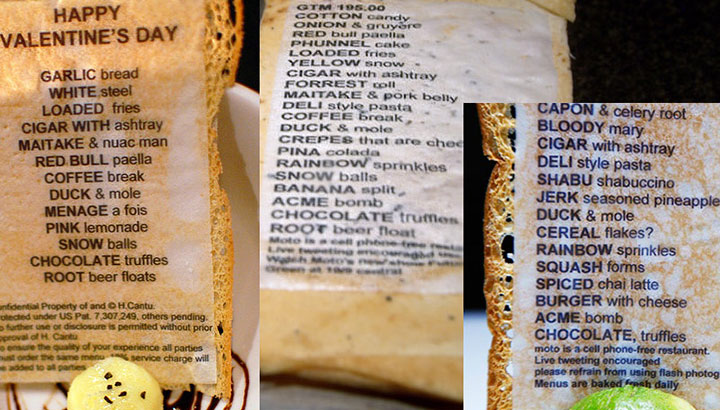 HAPPY
VALENTINE'S DAY
GARLIC bread
WHITE steel
LOADED fries
CIGAR WITH ashtray
MAITAKE & nuac man
RED BULL paella
COFFEE break
DUCK & mole
MENAGE a fois
PINK lemonade
SNOW balls
CHOCOLATE truffles
ROOT beer floats
onfidential Property of and © H.Cantu.
rotected under US Pat. 7,307,249, others pending.
o further use or disclosure is permitted without prior
pproval of H. Cantu
o ensure the quality of your experience all parties
ust order the same menu. service charge will
e added to all parties
GTM 195.00
COTTON candy
ONION & gruyere
RED bull paella
PHUNNEL cake
LOADED fries
YELLOW snow
CIGAR with ashtray
FORREST roll
MAITAKE & pork belly
DELI style pasta
COFFEE break
DUCK & mole
CREPES that are chee
PINA colada
RAINBOW sprinkles
SNOW balls
BANANA split
ACME bomb
CHOCOLATE truffles
ROOT beer float
Moto is a cell phone-free resta
Live tweeting encouraged
Watch Moto's new show
Green at 10/9 central
CAPON & celery root
BLOODY mary
CIGAR with ashtray
DELI style pasta
SHABU shabuccino
JERK seasoned pineapple
DUCK & mole
CEREAL flakes?
RAINBOW sprinkles
SQUASH forms
SPICED chai latte
BURGER with cheese
ACME bomb
CHOCOLATE, truffles
moto is a cell phone-free restaurant.
Live tweeting encouraged
please refrain from using flash photog
Menus are baked fresh daily